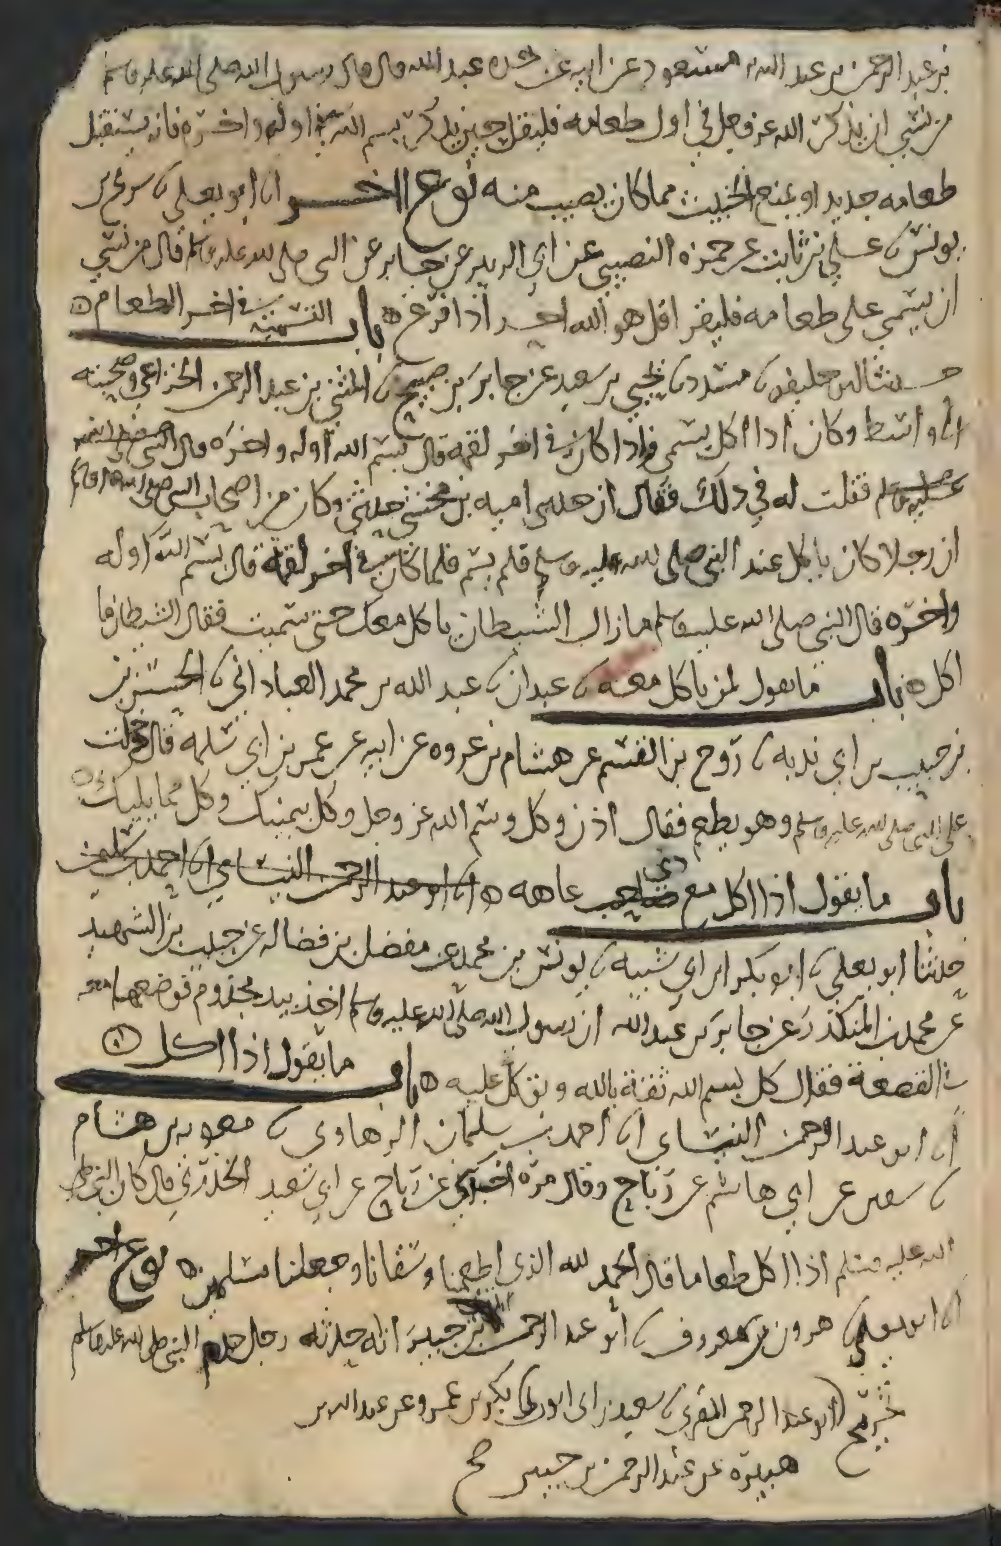 بن عبد الرحمن بن عبد الله بن مسعود عن ابيه عن جده عبد الله قال قال رسول الله صلى الله عليه وسلم
من نسي ان يذكر الله عز وجل في اول طعامه فليقل حين يذكر بسم الله في اوله واخره فانه يستقبل
طعامه جديدا ويمنع الخبيث مما كان يصيب منه نوع اخر انا ابو يعلى ثنا سريج بن
يونس ثنا علي بن ثابت عن حمزه النصيبي عن ابي الزبير عن جابر عن النبي صلى الله عليه وسلم قال من نسي
ان يسمي على طعامه فليقرا قل هو الله احد اذا فرغ باب التسميه في اخر الطعام
حدثنا ابو خليفه ثنا مسدد ثنا يحيى بن سعيد عن جابر بن صبيح ثنا المثنى بن عبد الرحمن الخزاعي وصحبته
الى واسط وكان اذا اكل يسمي فاذا كان في اخر لقمه قال بسم الله اوله واخره
فقلت له في ذلك فقال ان جدي اميه بن مخشي حدثني وكان من اصحاب النبي صلى الله عليه وسلم
ان رجلا كان ياكل عند النبي صلى الله عليه وسلم فلم يسم فلما كان في اخر لقمة قال بسم الله اوله
واخره قال النبي صلى الله عليه وسلم ما زال الشيطان ياكل معك حتى سميت فقال الشيطان ما
اكل باب ما يقول لمن ياكل معه ثنا عبدان ثنا عبد الله بن محمد العباداني ثنا الحسن بن
بن حبيب بن ابي ندبه ثنا روح بن القسم عن هشام بن عروه عن ابيه عن عمر بن ابي سلمه قال دخلت
على النبي صلى الله عليه وسلم وهو يطعم فقال اذن وكل وسم الله عز وجل وكل بيمينك وكل مما يليك
باب ما يقول اذا اكل مع ذي صاحب عاهه انا ابو عبد الرحمن النسائي انا احمد بن سليمن
حدثنا ابو يعلى ثنا ابو بكر ابن ابي شيبه ثنا يونس بن محمد عن مفضل بن فضاله عن حبيب بن الشهيد
عن محمد بن المنكدر عن جابر بن عبد الله ان رسول الله صلى الله عليه وسلم اخذ بيد مجذوم فوضعها معه
في القصعة فقال كل بسم الله ثقة بالله وتوكل عليه باب ما يقول اذا اكل
انا ابو عبد الرحمن النسائي انا احمد بن سليمان الرهاوي ثنا معويه بن هشام
ثنا سفين عن ابي هاشم عن رباح وقال مره اخرى عن رباح عن ابي سعيد الخدري قال كان النبي صلى
الله عليه وسلم اذا اكل طعاما قال الحمد لله الذي اطعمنا وسقانا وجعلنا مسلمين نوع اخر
انا ابو يعلى ثنا هرون بن معروف ثنا ابو عبد الرحمن بن جبير انه حدثه رجل خدم النبي صلى الله عليه وسلم
تخريج ابو عبد الرحمن المقري ثنا سعيد بن ابي ايوب ثنا بكر بن عمرو عن عبد الله بن
هبيره عن عبد الرحمن بن جبير صح